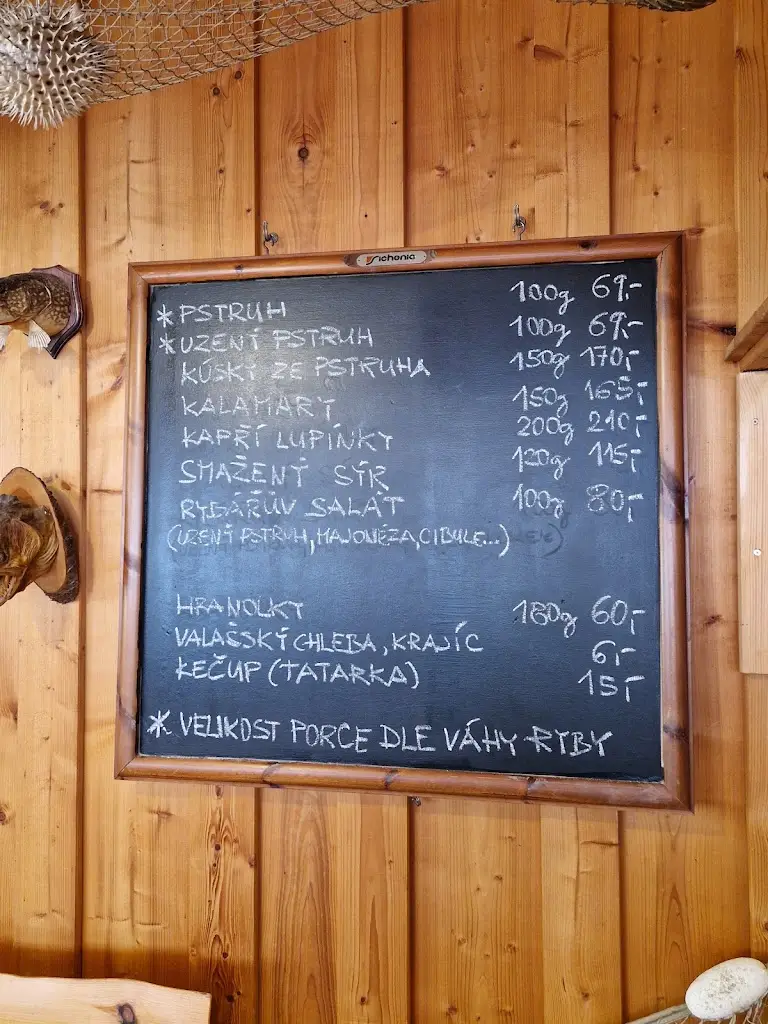 Sichonic
* PSTRUH 100g 69,-
* UZENÝ PSTRUH 100g 69,-
KÚSKY ZE PSTRUHA 150g 170,-
KALAMARY 150g 165,-
KAPŘÍ LUPÍNKY 200g 210,-
SMAŽENÝ SÝR 120g 115,-
RYBÁŘŮV SALÁT 100g 80,-
(UZENÝ PSTRUH, MAJONÉZA, CIBULE...)
HRANOLKY 180g 60,-
VALAŠSKÝ CHLEBA, KRAJÍC 6,-
KEČUP (TATARKA) 15,-
* VELIKOST PORCE DLE VÁHY RYBY